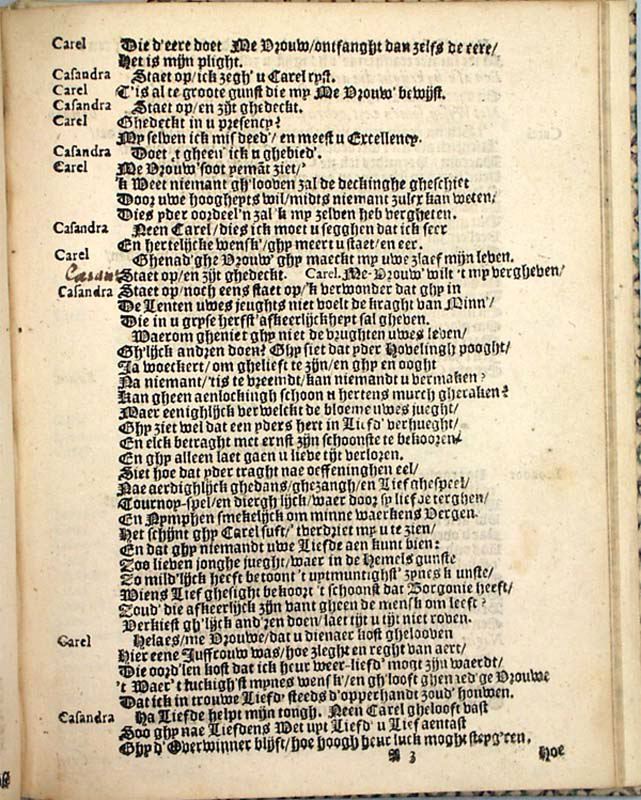 Carel Die d'eere doet Me Vrouw/ontfanght dan zelfs de eere/
Het is mijn plight.
Casandra Staet op/ick zegh' u Carel ryst.
Carel T'is al te groote gunst die my Me Vrouw' bewijst.
Casandra Staet op/en zijt ghedeckt.
Carel Ghedeckt in u presency?
My selven ick mis deed'/en meest u Excellency.
Casandra Doet 't gheen' ick u ghebied'.
Carel Me Vrouw' soot yemãt ziet/
'k Weet niemant gh'looven zal de deckinghe gheschiet
Door uwe hoogheyts wil/midts niemant zulcx kan weten/
Dies yder oordeel'n zal 'k my zelven heb vergheten.
Casandra Neen Carel/dies ick moet u segghen dat ick seer
En hertelijcke wensk'/ghy meert u staet/en eer.
Carel Ghenad'ghe Vrouw' ghy maeckt my uwe zlaef mijn leven.
Casant Staet op/en zijt ghedeckt. Carel. Me-Vrouw' wilt 't my vergheven/
Casandra Staet op/noch eens staet op/'k verwonder dat ghy in
De Lenten uwes jeughts niet voelt de kraght van Minn'/
Die in u gryse herfst' afkeerlijckheyt sal gheven.
Waerom gheniet ghy niet de vrughten uwes leven/
Gh'lijck andren doen? Ghy siet dat yder Hovelingh pooght/
Ja woeckert/om ghelieft te zijn/en ghy en ooght
Na niemant/'tis te vreemdt/kan niemandt u vermaken?
Kan gheen aenlockingh schoon u hertens murch gheraken?
Maer eenighlijck verwelckt de bloeme uwes jueght/
Ghy ziet wel dat een yders hert in Liefd' verhueght/
En elck betraght met ernst zijn schoonste te bekooren/
En ghy alleen laet gaen u lieve tijt verloren.
Siet hoe dat yder traght nae oeffeninghen eel/
Nae aerdighlijck ghedans/ghezangh/en Lief ghespeel/
Tournoy-spel/en diergh'lijck/waer door sy liefde terghen/
En Nymphen smekelijck om minne waerkens Vergen.
Het schijnt ghy Carel suft/'tverdriet my u te zien/
En dat ghy niemandt uwe Liefde aen kunt bien:
Zoo lieven jonghe jueght/waer in de Hemels gunste
Zo mild'lijck heeft betoont 't uytmuntighst' zynes kunste/
Wiens Lief ghesight bekoort 't schoonst dat Borgonie heeft/
Zoud' die afkeerlijck zijn vant gheen de mensk om leeft?
Verkiest gh'lijck and'ren doen/laet tijt u tijt niet roven.
Carel Helaes/me Vrouwe/dat u dienaer kost ghelooven
Hier eene Juffrouw was/hoe zleght en reght van aert/
Die oord'len kost dat ick heur weer-liefd' mogt zijn waerdt/
't Waer 't luckigh'st mynes wensk'/en gh'looft ghenaed'ge Vrouwe
Dat ick in trouwe Liefd' steeds d'opperhandt zoud' houwen.
Casandra Ha Liefde helpt mijn tongh. Neen Carel ghelooft vast
Soo ghy nae Liefdens Wet uyt Liefd' u Lief aentast
Ghy d'Overwinner blijft/hoe hoogh heur luck moght steyg'ren.
A 3 Hoe